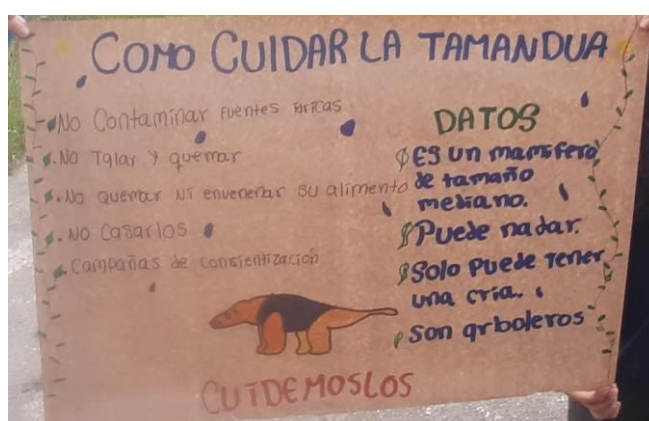 COMO CUIDAR LA TAMANDUA
No Contaminar fuentes íricas
No Talar y quemar
No quemar Ni envenenar su alimento
No Casarlos
Campañas de consientización
DATOS
ES un mamifero
de tamaño
mediano.
Puede nadar.
Solo Puede Tener
una cria.
Son arboleros
CUIDEMOSLOS